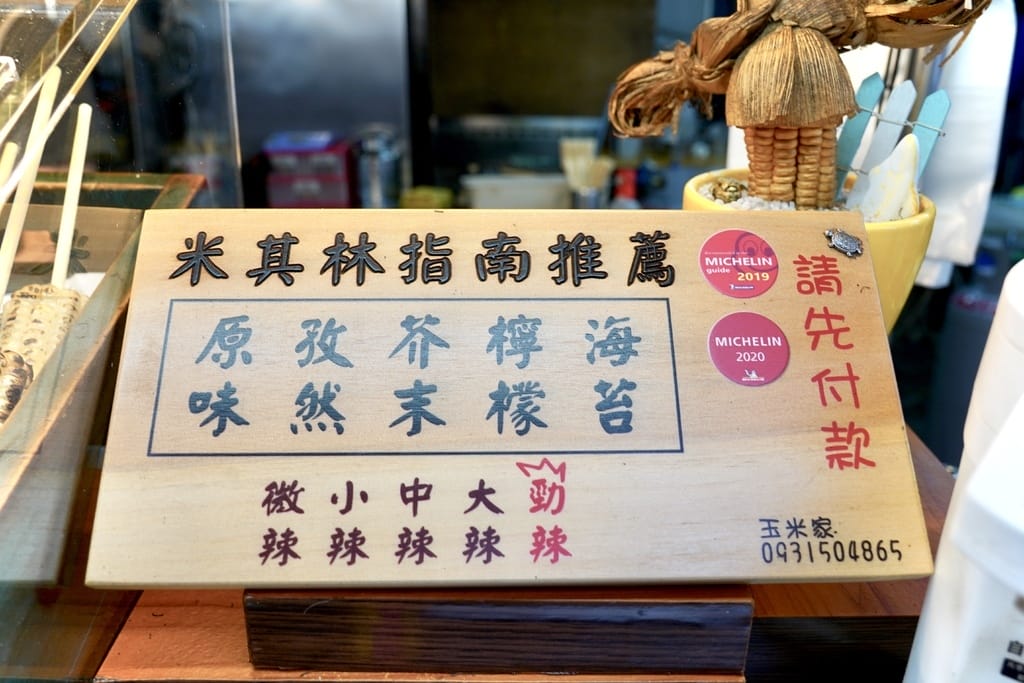 米其林指南推薦
原味 孜然 芥末 檸檬 海苔
微辣 小辣 中辣 大辣 勁辣
MICHELIN
guide 2019
MICHELIN
2020
請先付款
玉米家
0931504865
自